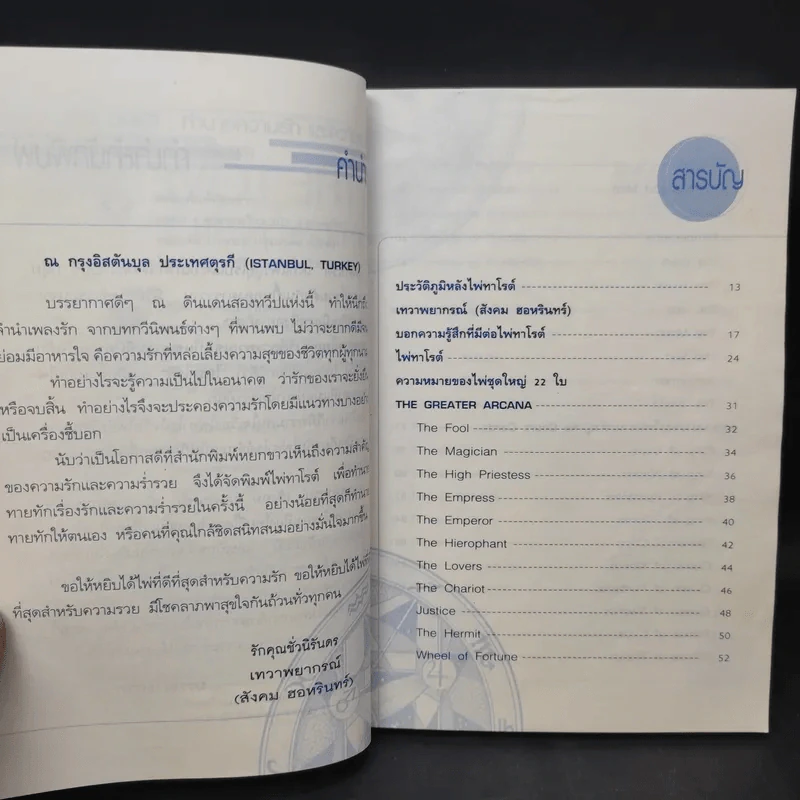 คำนำ
ณ กรุงอิสตันบุล ประเทศตุรกี (ISTANBUL, TURKEY)
บรรยากาศดีๆ ณ ดินแดนสองทวีปแห่งนี้ ทำให้นึกถึง
ลำนำเพลงรัก จากบทกวีนิพนธ์ต่างๆ ที่พานพบ ไม่ว่าจะยากดีมีจน
ย่อมมีอาหารใจ คือความรักที่หล่อเลี้ยงความสุขของชีวิตทุกผู้ทุกนาม
ทำอย่างไรจะรู้ความเป็นไปในอนาคต ว่ารักของเราจะยั่งยืน
หรือจบสิ้น ทำอย่างไรจึงจะประคองความรักโดยมีแนวทางบางอย่าง
เป็นเครื่องชี้บอก
นับว่าเป็นโอกาสดีที่สำนักพิมพ์หยกขาวเห็นถึงความสำคัญ
ของความรักและความร่ำรวย จึงได้จัดพิมพ์ไพ่ทาโรต์ เพื่อทำนาย
ทายทักเรื่องรักและความร่ำรวยในครั้งนี้ อย่างน้อยที่สุดก็ทำนาย
ทายทักให้ตนเอง หรือคนที่คุณใกล้ชิดสนิทสนมอย่างมั่นใจมากขึ้น
ขอให้หยิบได้ไพ่ที่ดีที่สุดสำหรับความรัก ขอให้หยิบได้ไพ่ที่ดี
ที่สุดสำหรับความรวย มีโชคลาภพาสุขใจกันถ้วนทั่วทุกคน
รักคุณชั่วนิรันดร
เทวาพยากรณ์
(สังคม ฮอหรินทร์)
สารบัญ
ประวัติภูมิหลังไพ่ทาโรต์ 13
เทวาพยากรณ์ (สังคม ฮอหรินทร์)
บอกความรู้สึกที่มีต่อไพ่ทาโรต์ 17
ไพ่ทาโรต์ 24
ความหมายของไพ่ชุดใหญ่ 22 ใบ
THE GREATER ARCANA 31
The Fool 32
The Magician 34
The High Priestess 36
The Empress 38
The Emperor 40
The Hierophant 42
The Lovers 44
The Chariot 46
Justice 48
The Hermit 50
Wheel of Fortune 52